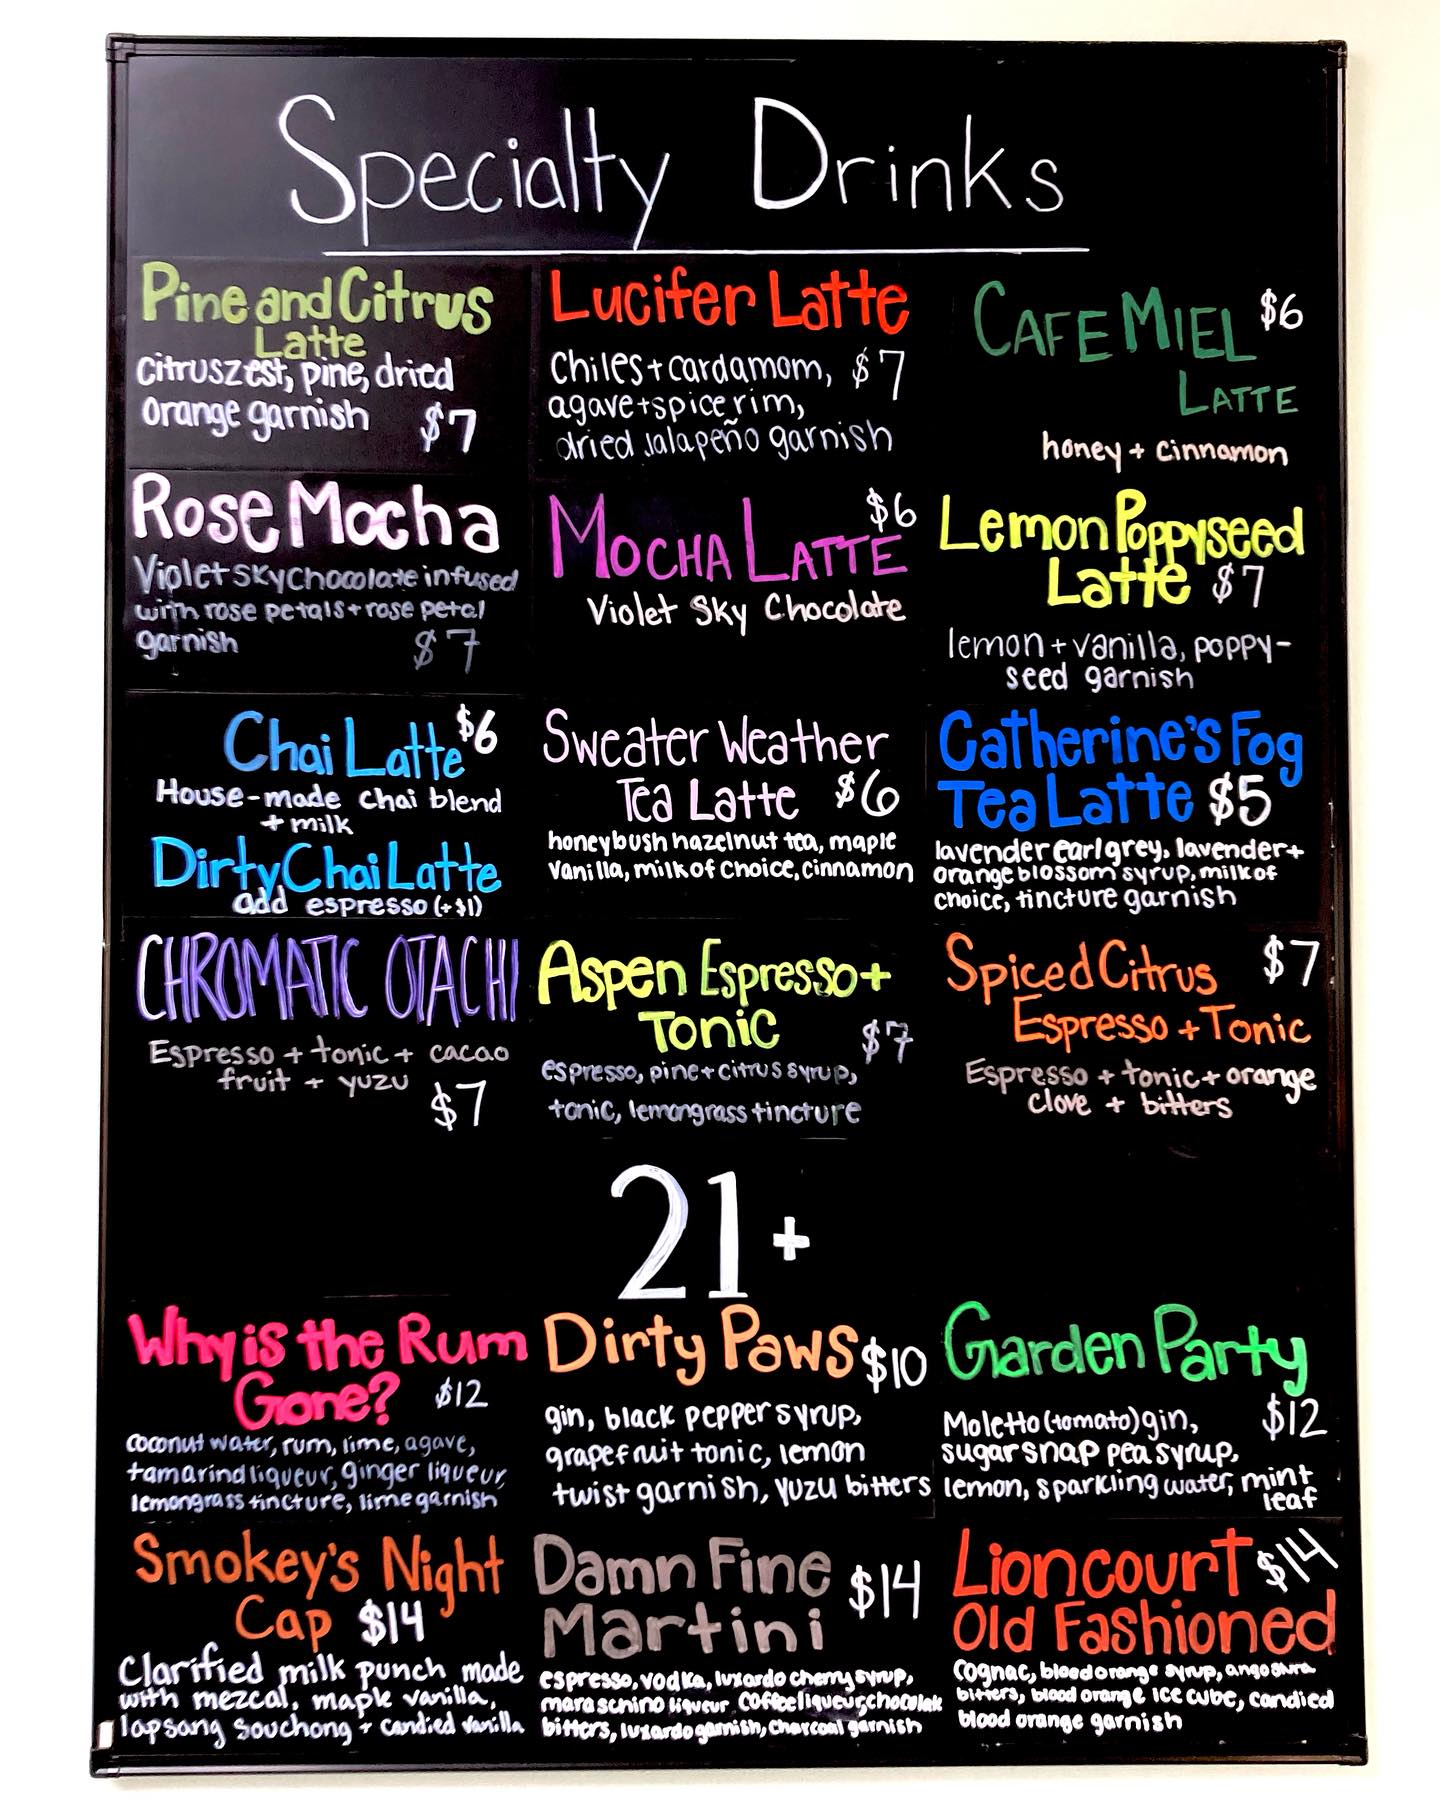 Specialty Drinks
Pine and Citrus
Latte
citrus zest, pine, dried
orange garnish $7
Lucifer Latte
Chiles + cardamom, $7
agave + spice rim,
dried jalapeño garnish
CAFE MIEL $6
LATTE
honey + cinnamon
Rose Mocha
Violet Sky Chocolate infused
with rose petals + rose petal
garnish $7
$6
MOCHA LATTE
Violet Sky Chocolate
Lemon Poppyseed
Latte $7
lemon + vanilla, poppy-
seed garnish
Chai Latte $6
House-made chai blend
+ milk
Dirty Chai Latte
add espresso (+$1)
Sweater Weather
Tea Latte $6
honeybush hazelnut tea, maple
vanilla, milk of choice, cinnamon
Catherine's Fog
Tea Latte $5
lavender earl grey, lavender +
orange blossom syrup, milk of
choice, tincture garnish
CHROMATIC OTACHI
Espresso + tonic + cacao
fruit + yuzu
$7
Aspen Espresso +
Tonic $7
espresso, pine + citrus syrup,
tonic, lemongrass tincture
Spiced Citrus $7
Espresso + Tonic
Espresso + tonic + orange
clove + bitters
21+
Why is the Rum
Gone? $12
coconut water, rum, lime, agave,
tamarind liqueur, ginger liqueur,
lemongrass tincture, lime garnish
Dirty Paws $10
gin, black pepper syrup,
grapefruit tonic, lemon
twist garnish, yuzu bitters
Garden Party
Moletto (tomato) gin, $12
sugar snap pea syrup,
lemon, sparkling water, mint
leaf
Smokey's Night
Cap $14
Clarified milk punch made
with mezcal, maple vanilla,
lapsang souchong + candied vanilla
Damn Fine $14
Martini
espresso, vodka, luxardo cherry syrup,
maraschino liqueur, coffee liqueur, chocolate
bitters, luxardo garnish, charcoal garnish
Lioncourt $14
Old Fashioned
cognac, blood orange syrup, angostura
bitters, blood orange ice cube, candied
blood orange garnish